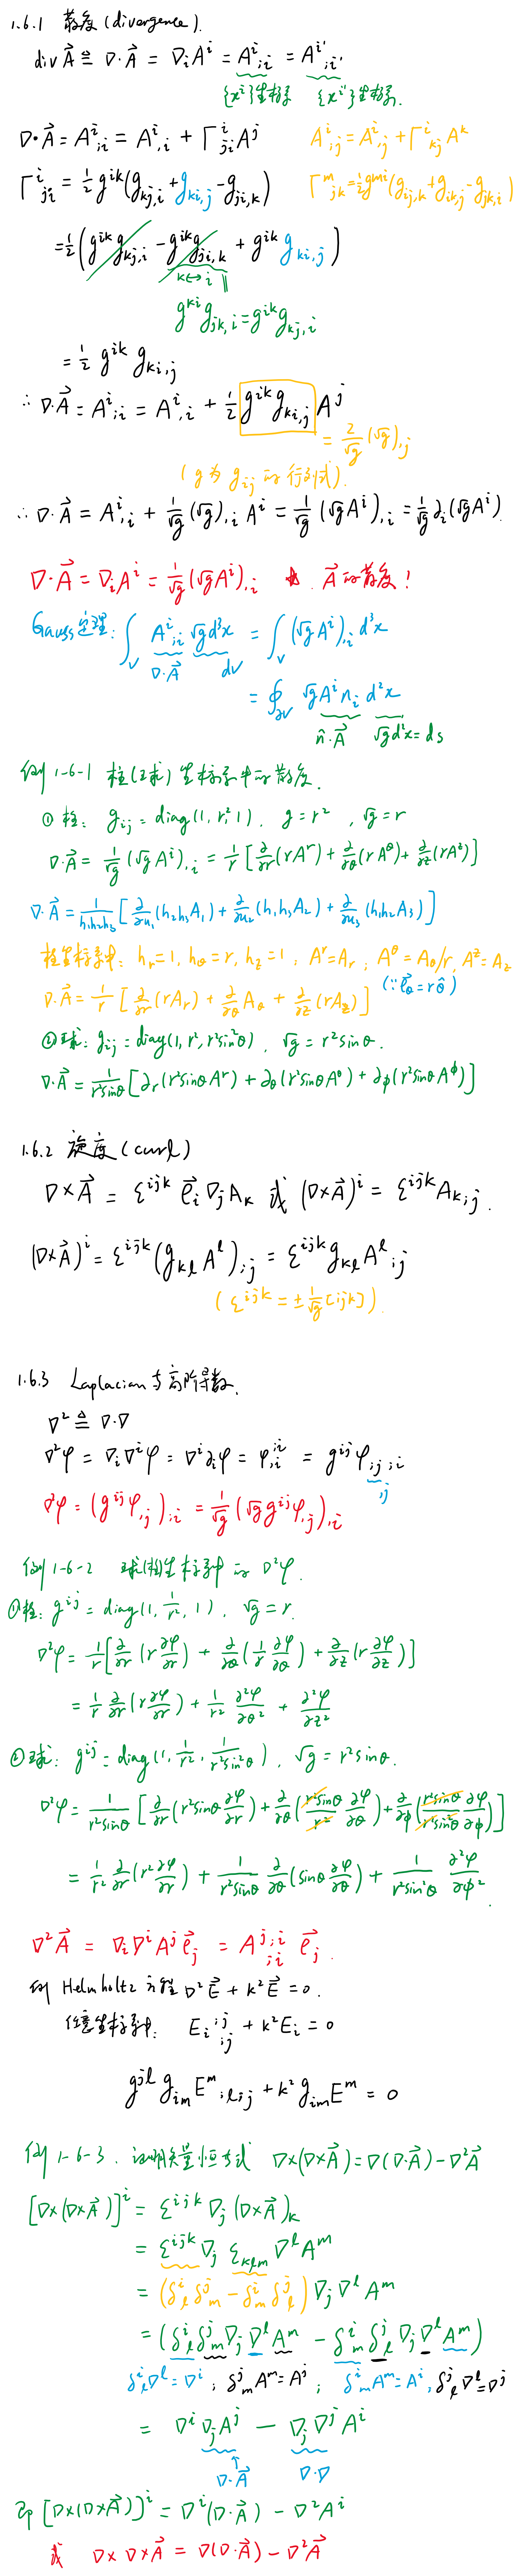 1.6.1 散度 (divergence).
div A⃗ ≜ ∇·A⃗ = ∇ᵢAⁱ = Aⁱ;ᵢ = Aⁱ';ᵢ'
{xⁱ}坐标系 {xⁱ'}坐标系.
∇·A⃗ = Aⁱ;ᵢ = Aⁱ,ᵢ + Γⁱⱼᵢ Aʲ   Aⁱ;ⱼ = Aⁱ,ⱼ + Γⁱₖⱼ Aᵏ
Γⁱⱼᵢ = ½ gⁱᵏ(gₖⱼ,ᵢ + gₖᵢ,ⱼ - gⱼᵢ,ₖ)   Γᵐⱼₖ = ½ gᵐⁱ(gᵢⱼ,ₖ + gᵢₖ,ⱼ - gⱼₖ,ᵢ)
= ½ (gⁱᵏ gₖⱼ,ᵢ - gⁱᵏ gⱼᵢ,ₖ + gⁱᵏ gₖᵢ,ⱼ)
k↔i ∥
gᵏⁱ gⱼₖ,ᵢ = gⁱᵏ gₖⱼ,ᵢ
= ½ gⁱᵏ gₖᵢ,ⱼ
∴ ∇·A⃗ = Aⁱ;ᵢ = Aⁱ,ᵢ + ½ gⁱᵏ gₖᵢ,ⱼ Aʲ
= 2/√g (√g),ⱼ
(g为 gᵢⱼ 的行列式).
∴ ∇·A⃗ = Aⁱ,ᵢ + 1/√g (√g),ᵢ Aⁱ = 1/√g (√g Aⁱ),ᵢ = 1/√g ∂ᵢ(√g Aⁱ)
∇·A⃗ = ∇ᵢAⁱ = 1/√g (√g Aⁱ),ᵢ ★. A⃗ 的散度!
Gauss定理: ∫_V Aⁱ;ᵢ √g d³x = ∫_V (√g Aⁱ),ᵢ d³x
∇·A⃗ dV
= ∮_∂V √g Aⁱ nᵢ d²x
n̂·A⃗ √g d²x = ds
例 1-6-1 柱(球)坐标系中的散度.
① 柱: gᵢⱼ = diag(1, r², 1). g = r², √g = r
∇·A⃗ = 1/√g (√g Aⁱ),ᵢ = 1/r [∂/∂r (rAʳ) + ∂/∂θ (rA^θ) + ∂/∂z (rA^z)]
∇·A⃗ = 1/(h₁h₂h₃) [∂/∂u₁ (h₂h₃A₁) + ∂/∂u₂ (h₁h₃A₂) + ∂/∂u₃ (h₁h₂A₃)]
柱坐标系中: hᵣ = 1, h_θ = r, h_z = 1; Aʳ = Aᵣ; A^θ = A_θ/r, A^z = A_z
∇·A⃗ = 1/r [∂/∂r (rAᵣ) + ∂/∂θ A_θ + ∂/∂z (rA_z)] (∵ e⃗_θ = r θ̂)
② 球: gᵢⱼ = diag(1, r², r²sin²θ), √g = r²sinθ.
∇·A⃗ = 1/(r²sinθ) [∂ᵣ(r²sinθ Aʳ) + ∂_θ(r²sinθ A^θ) + ∂_ϕ(r²sinθ A^ϕ)]
1.6.2 旋度 (curl)
∇×A⃗ = εⁱʲᵏ e⃗ᵢ ∇ⱼAₖ 或 (∇×A⃗)ⁱ = εⁱʲᵏ Aₖ;ⱼ.
(∇×A⃗)ⁱ = εⁱʲᵏ (gₖₗ Aˡ);ⱼ = εⁱʲᵏ gₖₗ Aˡ;ⱼ
(εⁱʲᵏ = ± 1/√g [ijk])
1.6.3 Laplacian 与高阶导数.
∇² ≜ ∇·∇
∇²φ = ∇ᵢ∇ⁱφ = ∇ⁱ∂ᵢφ = φ,ᵢ^;ⁱ = gⁱʲ φ;ⱼ;ᵢ
,j
∇²φ = (gⁱʲ φ,ⱼ);ᵢ = 1/√g (√g gⁱʲ φ,ⱼ),ᵢ
例 1-6-2 球(柱)坐标系中的 ∇²φ.
① 柱: gⁱʲ = diag(1, 1/r², 1), √g = r.
∇²φ = 1/r [∂/∂r (r ∂φ/∂r) + ∂/∂θ (1/r ∂φ/∂θ) + ∂/∂z (r ∂φ/∂z)]
= 1/r ∂/∂r (r ∂φ/∂r) + 1/r² ∂²φ/∂θ² + ∂²φ/∂z²
② 球: gⁱʲ = diag(1, 1/r², 1/(r²sin²θ)), √g = r²sinθ.
∇²φ = 1/(r²sinθ) [∂/∂r (r²sinθ ∂φ/∂r) + ∂/∂θ (r²sinθ/r² ∂φ/∂θ) + ∂/∂ϕ (r²sinθ/(r²sin²θ) ∂φ/∂ϕ)]
= 1/r² ∂/∂r (r² ∂φ/∂r) + 1/(r²sinθ) ∂/∂θ (sinθ ∂φ/∂θ) + 1/(r²sin²θ) ∂²φ/∂ϕ².
∇²A⃗ = ∇ᵢ∇ⁱAʲ e⃗ⱼ = Aʲ^;ⁱ;ᵢ e⃗ⱼ.
例 Helmholtz 方程 ∇²E⃗ + k²E⃗ = 0.
任意坐标系中: Eᵢ^;ʲ;ⱼ + k²Eᵢ = 0
gʲˡ gᵢₘ Eᵐ;ₗ;ⱼ + k² gᵢₘ Eᵐ = 0
例 1-6-3. 证明矢量恒等式 ∇×(∇×A⃗) = ∇(∇·A⃗) - ∇²A⃗
[∇×(∇×A⃗)]ⁱ = εⁱʲᵏ ∇ⱼ (∇×A⃗)ₖ
= εⁱʲᵏ ∇ⱼ εₖₗₘ ∇ˡAᵐ
= (δⁱₗ δʲₘ - δⁱₘ δʲₗ) ∇ⱼ∇ˡAᵐ
= (δⁱₗ δʲₘ ∇ⱼ∇ˡAᵐ - δⁱₘ δʲₗ ∇ⱼ∇ˡAᵐ)
δⁱₗ∇ˡ = ∇ⁱ; δʲₘAᵐ = Aʲ; δⁱₘAᵐ = Aⁱ, δʲₗ∇ˡ = ∇ʲ
= ∇ⁱ ∇ⱼAʲ - ∇ⱼ∇ʲ Aⁱ
∇·A⃗ ∇·∇
即 [∇×(∇×A⃗)]ⁱ = ∇ⁱ(∇·A⃗) - ∇²Aⁱ
或 ∇×∇×A⃗ = ∇(∇·A⃗) - ∇²A⃗